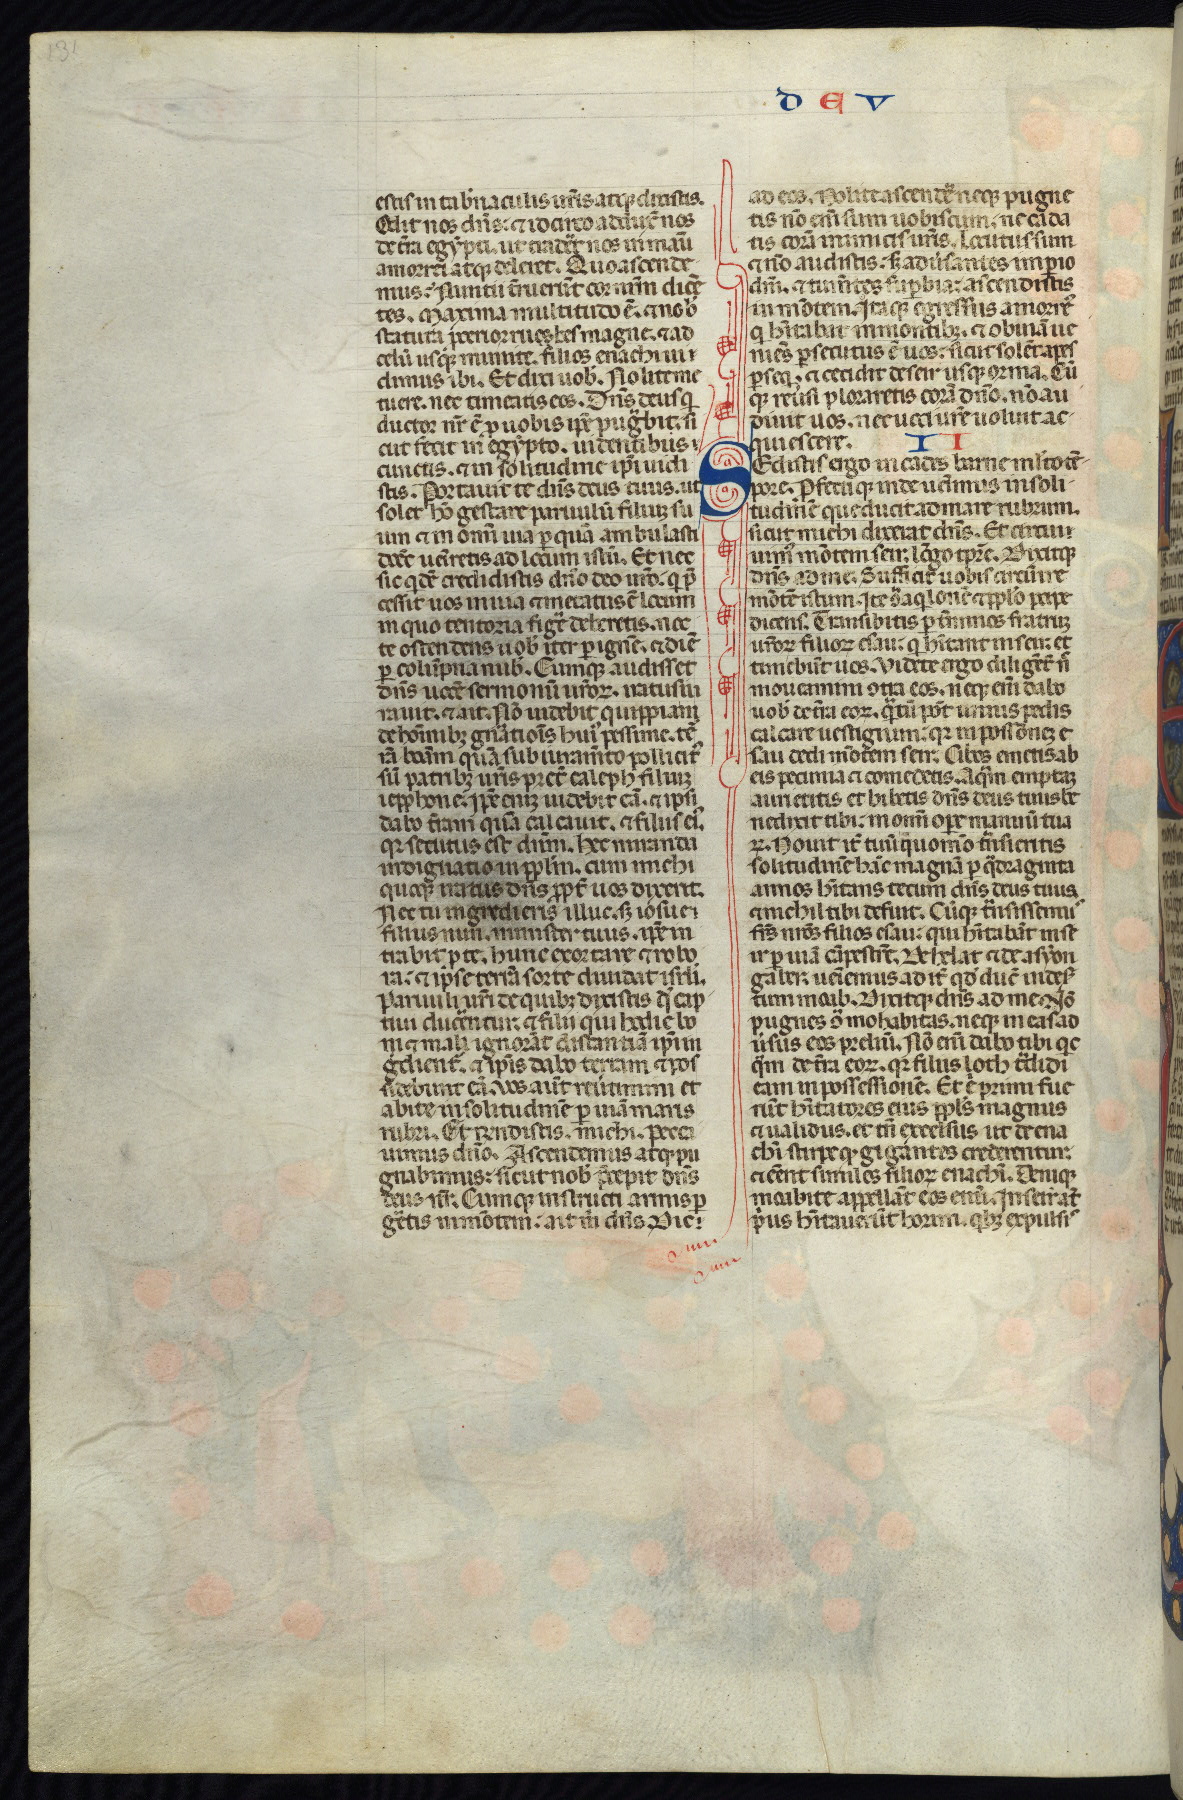 131
D E V
estis in tab̾naculis ur̄is atq; dixistis.
Odit nos dn̄s: ⁊ idcirco aduxit̄ nos
de tr̄a egẏpti. ut trad̾et nos in manu
amorrei atq; deleret. Quo ascende
mus: Nuntii t̾ruerūt cor nr̄m dicē
tes. Maxima multitudo ē. ⁊ nob̄
statura p̄cerior urbes magne. ⁊ ad
celū usq; munite. filios enachi ui
dimus ibi. Et dixi uob̄. Nolite me
tuere. nec timeatis eos. Dn̄s deus q̄
ductor nr̄ ē p uobis ip̄e pugͣbit. si
cut fecit in egẏpto. uidentibus
cunctis. ⁊ in solitudine ip̄i uidi
stis. Portauit te dn̄s deus tuus. ut
solet hō gestare paruulū filiuȝ su
um ⁊ in omī uia p quā ambulasti
donec uēiretis ad locum istū. Et nec
sic qͥdē credidistis dn̄o deo ur̄o. q̄ p̄
cessit uos in uia ⁊ metatus ē locum
in quo tentoria fig̾e deberetis. nocte
te ostendens uob̄ iter p ignē. ⁊ die
p colūpna nub̄. Cumq; audisset
dn̄s uocē sermonū ur̄oꝝ. iratus iu
rauit. ⁊ ait. Nō uidebit quippiam
de hoīnibȝ gn̄ationis huiꝰ pessime. tr̄
rā bonam quā sub iuram̄to pollicitꝰ
sū patribȝ ur̄is p̄ter caleph filiuȝ
iepphone. Ip̄e eniȝ uidebit eā. ⁊ ipsi
dabo terram quā calcauit. ⁊ filiis eiꝰ.
qr secutus est dn̄m. Nec miranda
indignatio in pplm̄. cum michi
quoq; iratus dn̄s ppt̄ uos dixerit.
Nec tu ingredieris illuc. sȝ iosue
filius nun. minister tuus. ip̄e in
trabit p te. hunc exortare ⁊ robo
ra: ⁊ ipse terrā sorte diuidat isrl̄i.
Paruuli ur̄i de quibȝ dixistis qͥ cap
tiui ducerentur: ⁊ filii qui hodie bo
ni ⁊ mali ignorāt distantiā ip̄i in
gͤdient̄. ⁊ ip̄is dabo terram ⁊ pos
sidebunt eā. Vos aūt reu̾timini et
abite in solitudinē p uiam maris
rubri. Et rn̄distis. michi. pecca
uimus dn̄o. Ascendemus atq; pu
gnabimus: sicut nob̄ p̄cepit dn̄s
deus nr̄. Cumq; instructi armis p
gͤetis in mōtem: ait m̄ dn̄s Dic
ad eos. Nolite ascendͤe neq; pugne
tis nō eiī sum uobiscum. ne cada
tis corā inimicis ur̄is. Locutus sum
⁊ nō audistis. s̄ adu̾santes imp̄io
dn̄i. ⁊ tum̄tes sup̄bia: ascendistis
in mōtem. Itaq; egressus amorreꝰ
q̄ hītabat in montibȝ. ⁊ obuiā ue
niēs p̄secutus ē uos: sicut solēt apes
p̄seq̄. ⁊ cecidit de seir usq; orma. Cū
q; reu̾si ploraretis corā dn̄o. nō au
diuit uos. nec uoci ur̄e uoluit ac-
quiescere. I I
SEdistis ergo in cades barne ml̄to tē-
pore. Pfectiq; inde uenimus in soli-
tudinē que ducit ad mare rubrum.
sicut michi dixerat dn̄s. Et circui
uimꝰ mōtem seir: lōgo tp̄re. Dixitq;
dn̄s ad me. Sufficit uobis circūire
mōtē istum. Ite ꝯ̄ aqͥlonē ⁊ pplo p̄cipe
dicens. Transibitis p t̾minos fratruȝ
ur̄oꝝ filioꝝ esau: q̄ hītant in seir: et
timebūt uos. Videte ergo diligēt̄ n̄
moueamini ꝯtra eos. neq; eiī dabo
uob̄ de tr̄a eoꝝ. qͣtū pōt unius pedis
calcare uestigium: qr in possōneȝ e
sau dedi mōtem seir. Cibos emetis ab
eis pecunia ⁊ comedetis. Aqͣm emptaȝ
aurietis et bibetis dn̄s deus tuus be
nedixit tibi: in omī ope manuū tua
ꝝ. Nouit it̄ tuū quomō tn̄sieritis
solitudinē hāc magnā p qͣdraginta
annos hītans tecum dn̄s deus tuus
⁊ nichil tibi defuit. Cūq; tn̄sissemꝰ
frēs nr̄os filios esau: qui hītabāt in se
ir p uiā cāpestrē. De helat ⁊ de asyon
gaber: uēiemus ad it̄ qd̄ duc̄ in des̄
tum moab. Dixitq; dn̄s ad me. Nō
pugnes ꝯ̄ mohabitas. neq; ineas ad
u̾sus eos preliū. Nō eiī dabo tibi qͥc
qͣm de tr̄a eoꝝ. qr filiis loth tͣdidi
eam in possessionē. Et ē primi fue
rūt hītatores eius ppl̄s magnus
⁊ ualidus. et tā excelsus ut de ena
chi stirpe qͣ gigantes crederentur:
⁊ cēnt similes filioꝝ enachi. Deniq;
moabite appellāt eos emī. In seir at̄
p̄us hītauerūt horrei. qͥbȝ expulsis